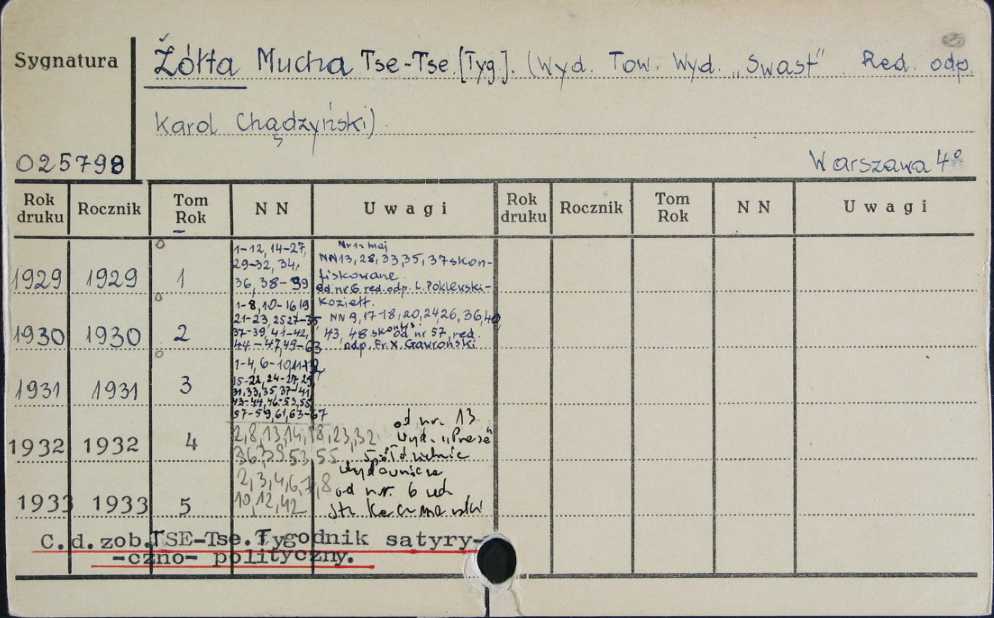 Sygnatura
Żółta Mucha Tse-Tse. [Tyg]. (Wyd. Tow. Wyd. „Swast” Red. odp.
Karol Chądzyński)
025798
Warszawa 4°
Rok druku Rocznik Tom Rok NN Uwagi Rok druku Rocznik Tom Rok NN Uwagi
1929 1929 1
1-12, 14-27,
29-32, 34,
36, 38-39
Nr 1= maj
NN 13, 28, 33, 35, 37 skon-
fiskowane
od nr 6 red. odp. L. Poklewski-
Koziełł.
1930 1930 2
1-8, 10-16, 19
21-23, 25 27-35
37-39, 41-42,
44-47, 49-63
NN 9, 17-18, 20, 24 26, 36, 40,
43, 48 skonf. od nr 57, red.
odp. Fr. X. Gawroński
1931 1931 3
1-4, 6-10
15-22, 24-27, 29
31, 33, 35, 37-41
43-44, 46-53, 55
57-59, 61, 63-67
1932 1932 4
2, 8, 13, 14, 18, 23, 32
36, 39, 53, 55
od nr. 13
wyd. „Prasa”
Spółdzielnia
Wydawnicza
1933 1933 5
2, 3, 4, 6, 7, 8
10, 12, 42
od nr. 6 red.
St. Kaczmarski
C.d.zob. TSE-Tse. Tygodnik satyry-
-czno- polityczny.